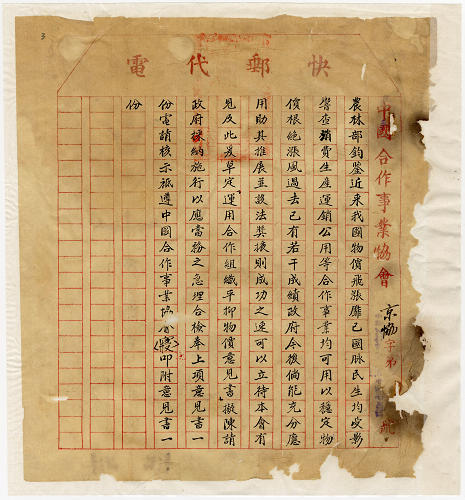 3
快郵代電
中國合作事業協會 京協字第 號
農林部鈞鑒近來我國物價飛漲靡已國脈民生均受影
響查消費生產運銷公用等合作事業均可用以穩定物
價根絕漲風過去已有若干成績政府今後倘能充分應
用助其推展並設法獎掖則成功之速可以立待本會有
見及此爰草定運用合作組織平抑物價意見書擬陳請
政府採納施行以應當務之急理合檢奉上項意見書一
份電請核示祗遵中國合作事業協會叩附意見書一
份